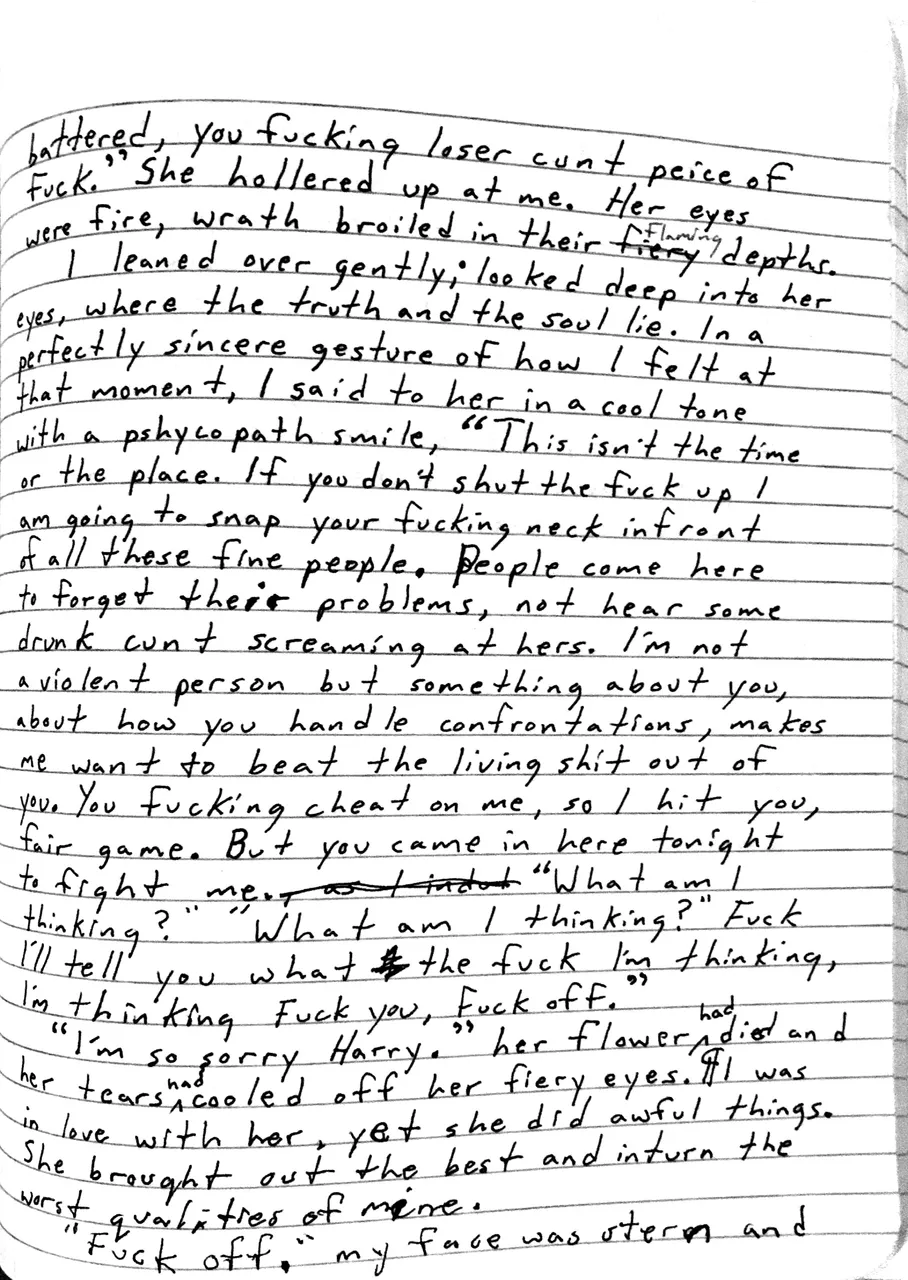 battered, you fucking loser cunt peice of
fuck." She hollered up at me. Her eyes
were fire, wrath broiled in their fiery flaming depths.
I leaned over gently; looked deep into her
eyes, where the truth and the soul lie. In a
perfectly sincere gesture of how I felt at
that moment, I said to her in a cool tone
with a pshycopath smile, "This isn't the time
or the place. If you don't shut the fuck up I
am going to snap your fucking neck infront
of all these fine people. People come here
to forget their problems, not hear some
drunk cunt screaming at hers. I'm not
a violent person but something about you,
about how you handle confrontations, makes
me want to beat the living shit out of
you. You fucking cheat on me, so I hit you,
fair game. But you came in here tonight
to fight me. "What am I
thinking?" "What am I thinking?" Fuck
I'll tell you what the fuck I'm thinking,
I'm thinking Fuck you, Fuck off."
"I'm so sorry Harry." her flower had died and
her tears had cooled off her fiery eyes. ¶I was
in love with her, yet she did awful things.
She brought out the best and inturn the
worst qualities of mine.
"Fuck off." my face was stern and